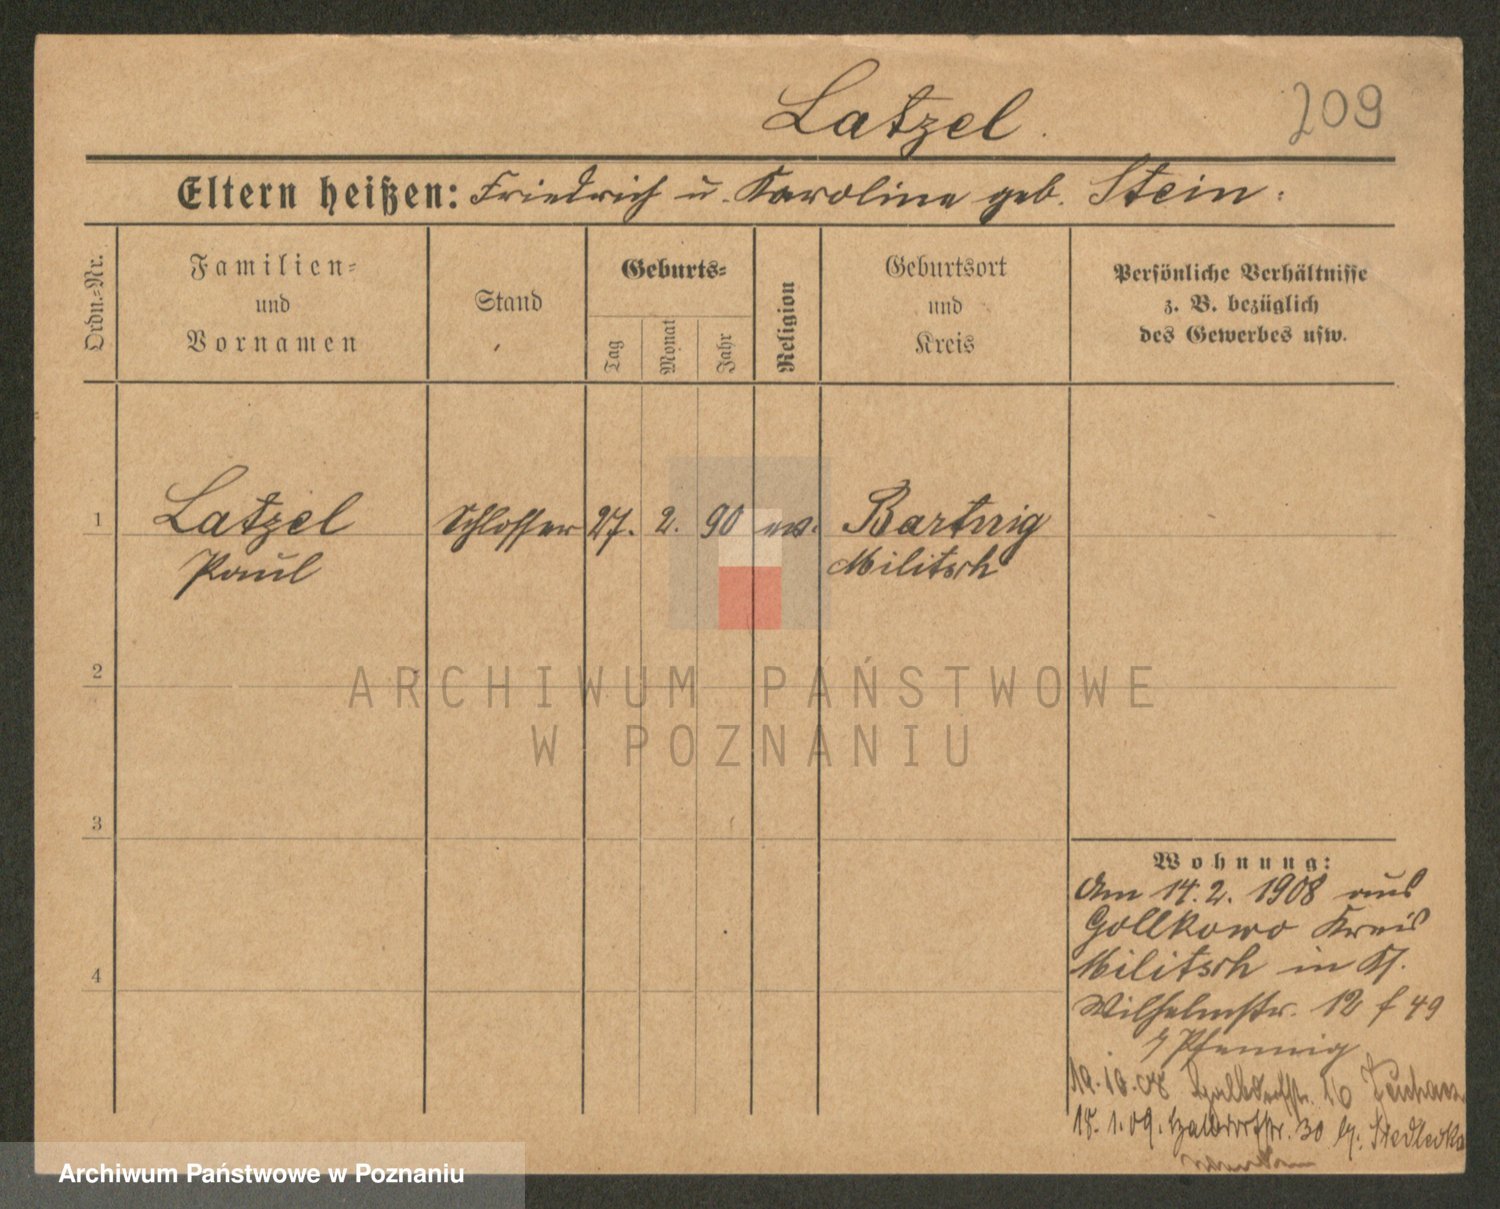 Latzel.
209
Eltern heißen: Friedrich u. Karoline geb. Stein:
Ordn.-Nr.
Familien-
und
Vornamen
Stand
Geburts-
Tag
Monat
Jahr
Religion
Geburtsort
und
Kreis
Persönliche Verhältnisse
z. B. bezüglich
des Gewerbes usw.
1
Latzel
Paul
Schlosser
27.
2.
90
ev.
Bartnig
Militsch
2
3
4
Wohnung:
Am 14.2. 1908 aus
Gollkowo Kreis
Militsch in
Wilhelmstr. 12 f 49
Pfennig
19.10.08 16
18.1.09. 30
ARCHIWUM PAŃSTWOWE
W POZNANIU
Archiwum Państwowe w Poznaniu